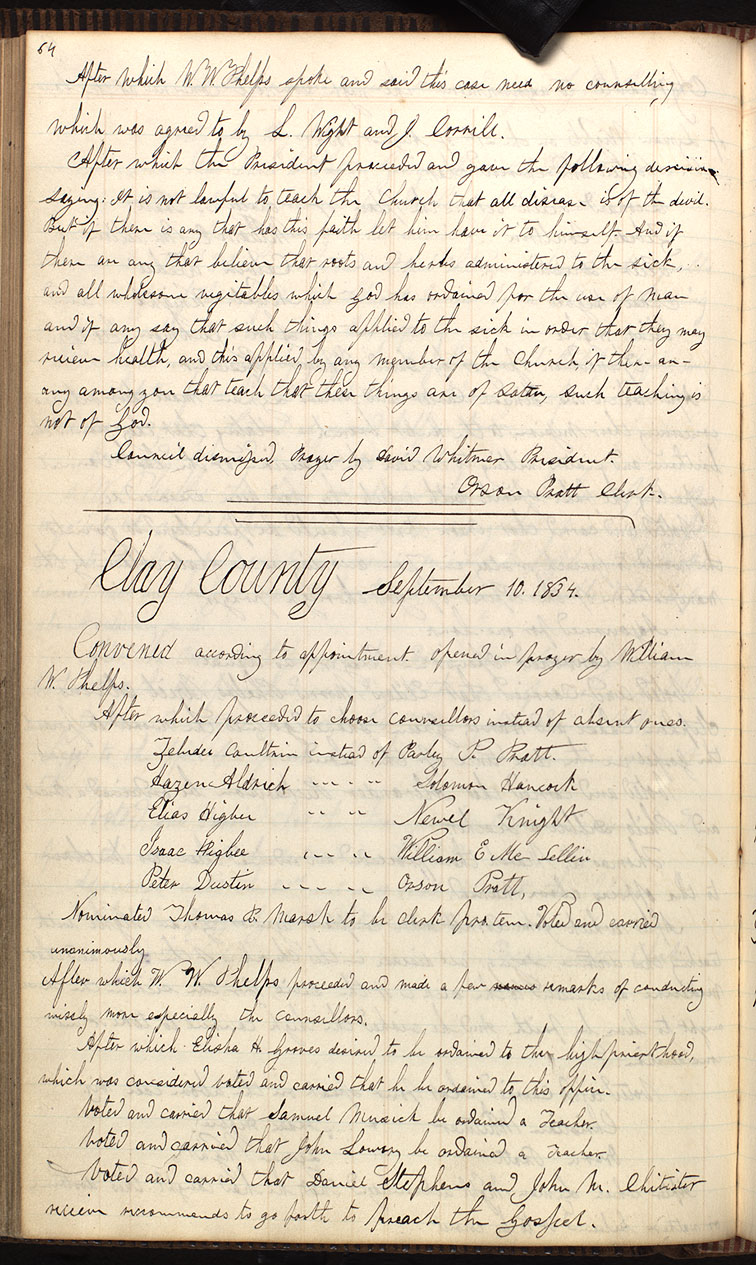 64
After which W. W. Phelps spoke and said this case need no counselling
which was agreed to by L. Wight and J. Corrill.
After which the President proceeded and gave the following decision
saying: It is not lawful to teach the Church that all disease is of the devil.
But if there is any that has this faith let him have it to himself. And if
there are any that believe that roots and herbs administered to the sick,
and all wholesome vegitables which God has ordained for the use of man
and if any say that such things applied to the sick in order that they may
recieve health, and this applied by any member of the Church if there are
any among you that teach that these things are of Satan, such teaching is
not of God.
Council dismissed, Prayer by David Whitmer President.
Orson Pratt Clerk.
Clay County September 10. 1834.
Convened according to appointment. opened in prayer by William
W. Phelps.
After which proceeded to choose counsellors instead of absent ones.
Zebedee Coultrin instead of Parley P. Pratt.
Hazen Aldrich --- - " Solomon Hancock
Elias Higbee " " Newel Knight
Isaac Higbee - - " " William E Mc Lellin
Peter Dustin - - - - Orson Pratt,
Nominated Thomas B. Marsh to be clerk protem. Voted and carried
unanimously
After which W. W. Phelps proceeded and made a few remarks of conducting
wisely more especially the counsellors.
After which Elisha H. Groves desired to be ordained to the high priesthood,
which was considered voted and carried that he be ordained to this office.
Voted and carried that Samuel Musick be ordained a Teacher.
Voted and carried that John Lowry be ordained a Teacher
Voted and carried that Daniel Stephens and John M. Chitister
recieve recommends to go forth to preach the Gospel.